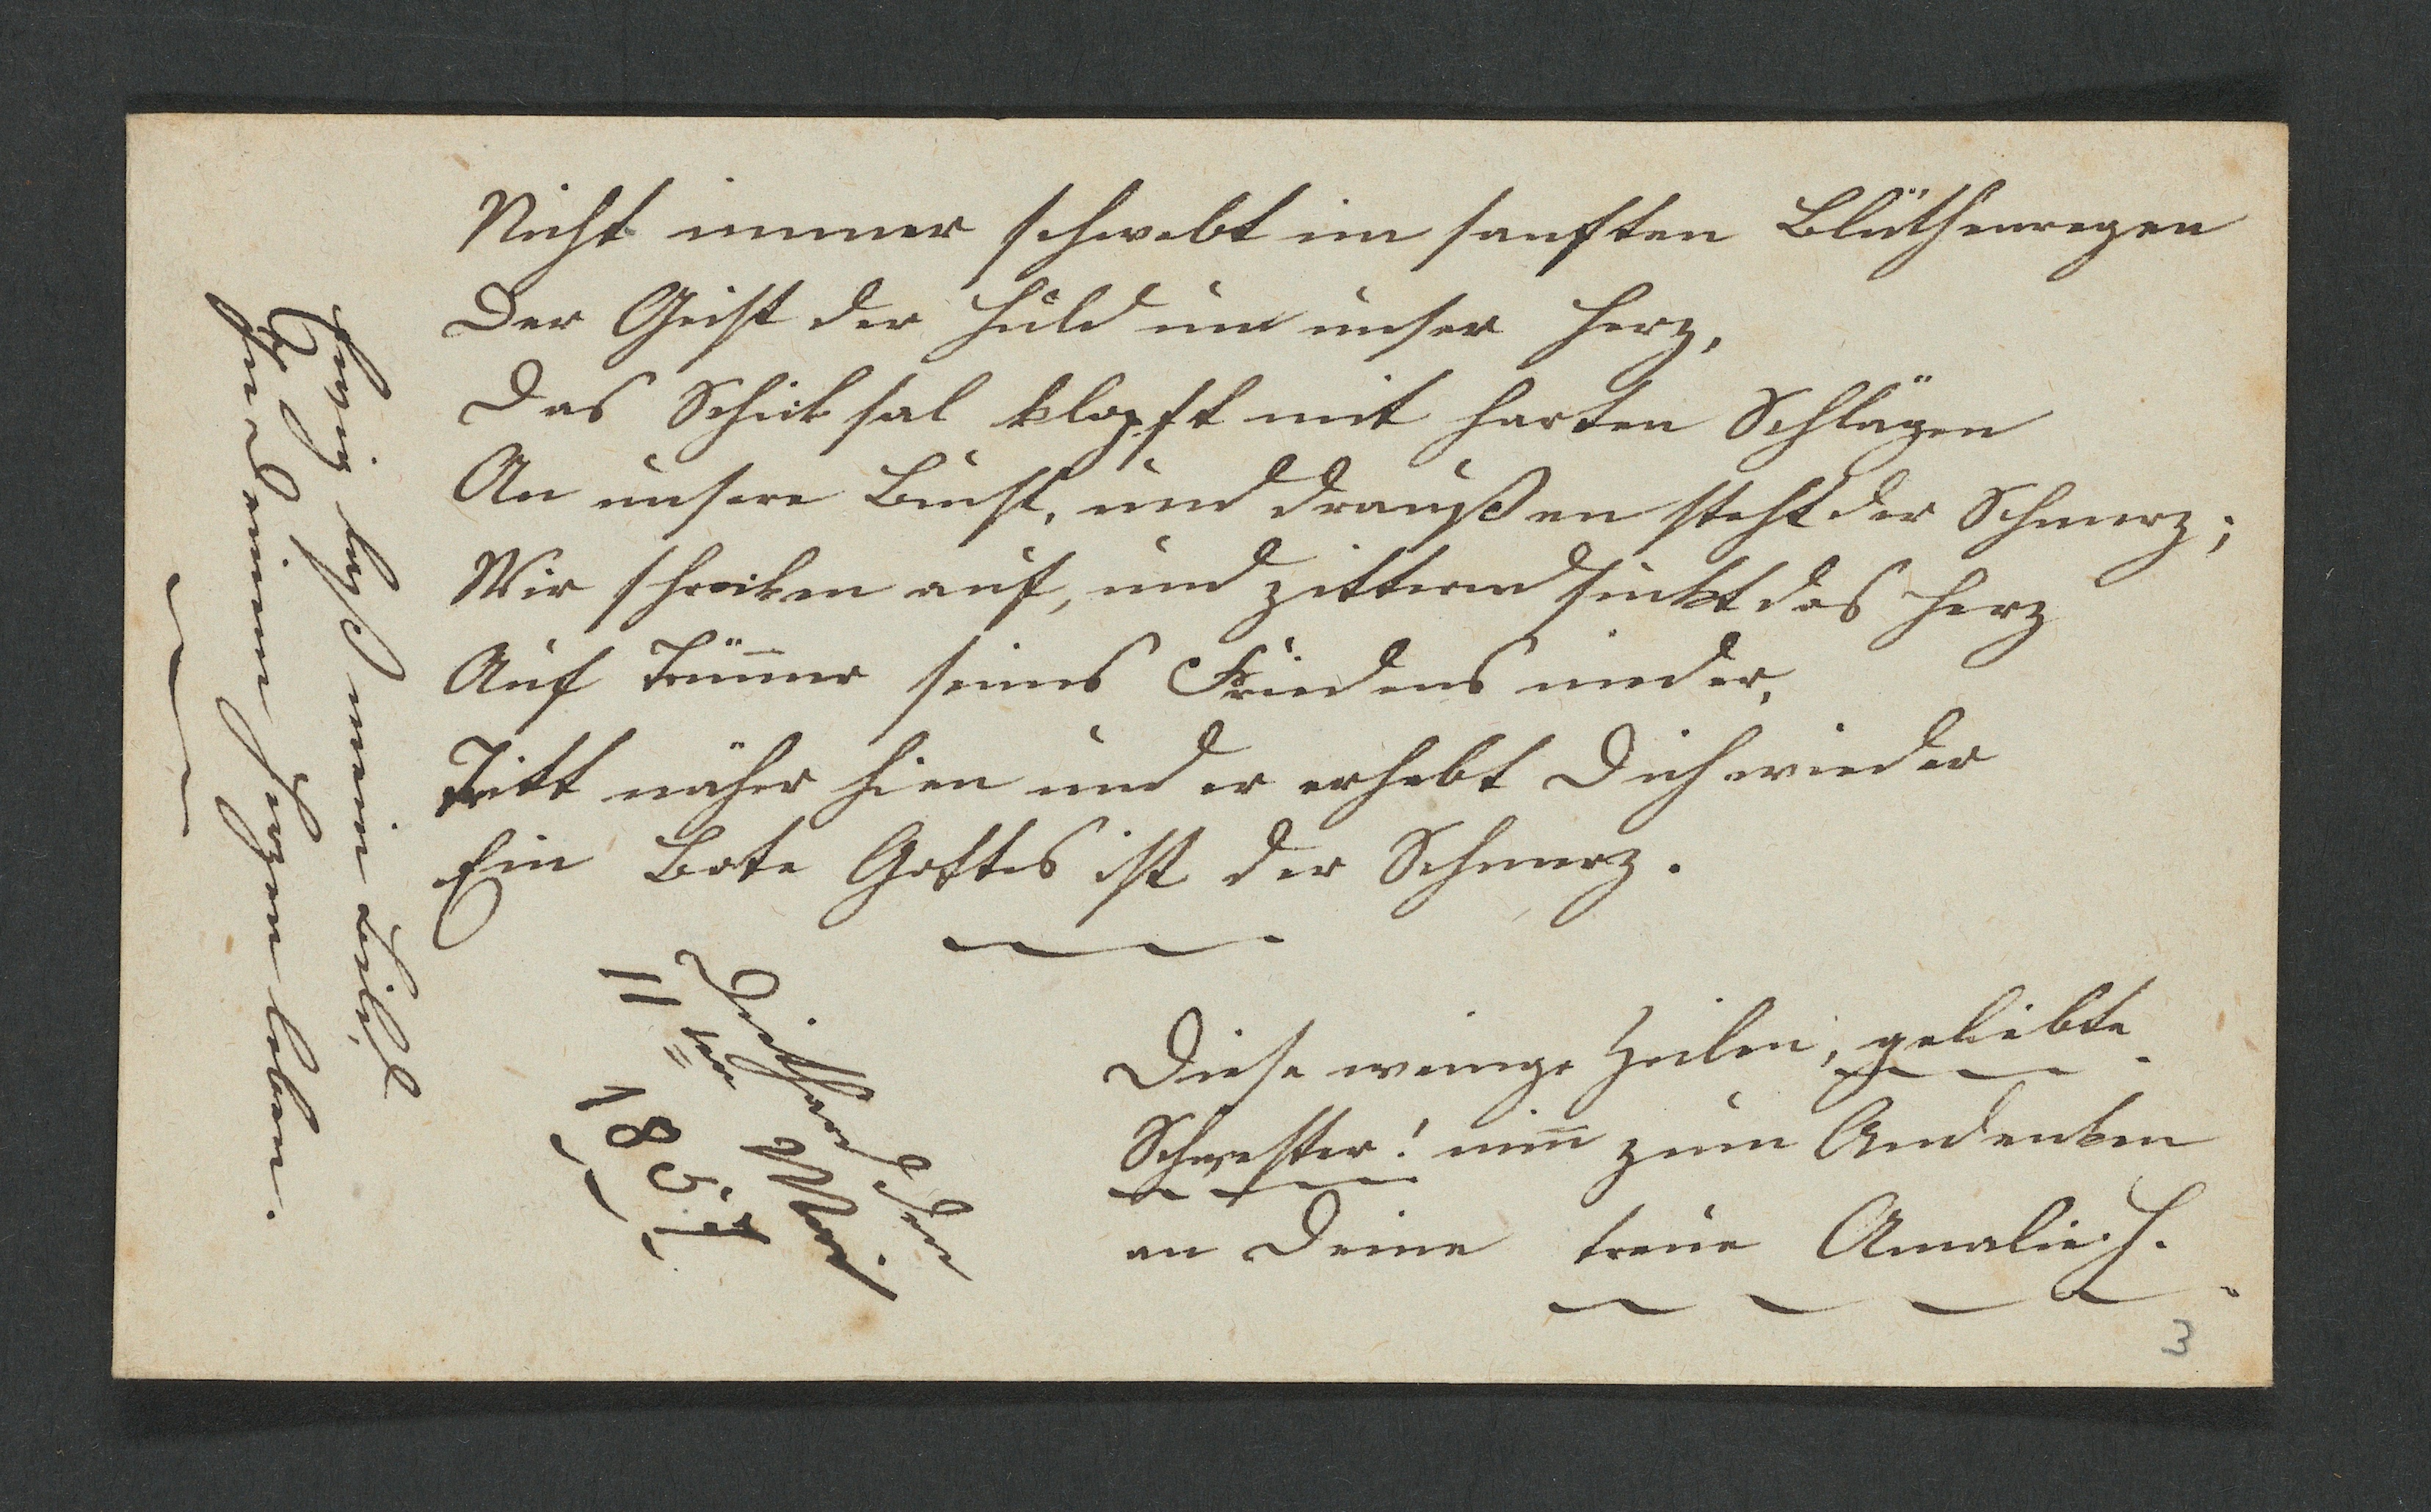 Nicht immer schwebt im sanften Blüthenregen
Der Geist der Huld um unser Herz,
Das Schiksal klopft mit harten Schlägen
An unsere Brust, und draußen steht der Schmerz;
Wir schreiken auf, und zitternd sinkt das Herz
Auf Trüm̄er seines Friedens nieder,
Tritt näher hien und er erhebt Dich wieder
Ein Bote Gottes ist der Schmerz.
Diese weinge Zeilen, geliebte
Schwester! nim̄ zum Andenken
an Deine treue Amalie H.
den
11ten Mai
1857
Ewig laß mein Bild
In Deinem Herzen leben.
3